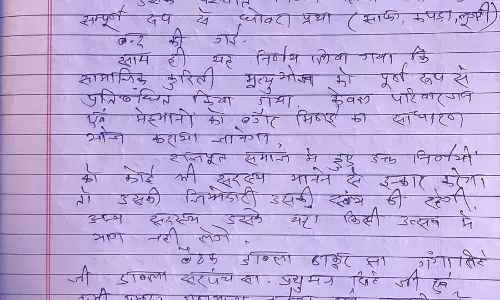 सम्पूर्ण रूप से ओढावणी प्रथा (साफा, कपड़ा, लूगड़ी)
बन्द की गई.
साथ ही यह निर्णय लिया गया कि
सामाजिक कुरिती मृत्युभोज को पूर्ण रूप से
प्रतिबन्धित किया गया. केवल परिवारजन
एवं मेहमानों को बगैर मिठाई का साधारण
भोज कराया जावेगा.
राजपूत समाज में हुए उक्त निर्णयों
को कोई भी सदस्य मानने से इन्कार करेगा
तो उसकी जिम्मेदारी उसकी स्वयं की रहेगी.
अन्य सदस्य उसके यहा किसी उत्सव में
भाग नहीं लेगे.
बैठक डाबला ठाकुर सा गंगा सिंह
जी डाबला सरपंच सा. प्रधुमन सिंह जी एवं